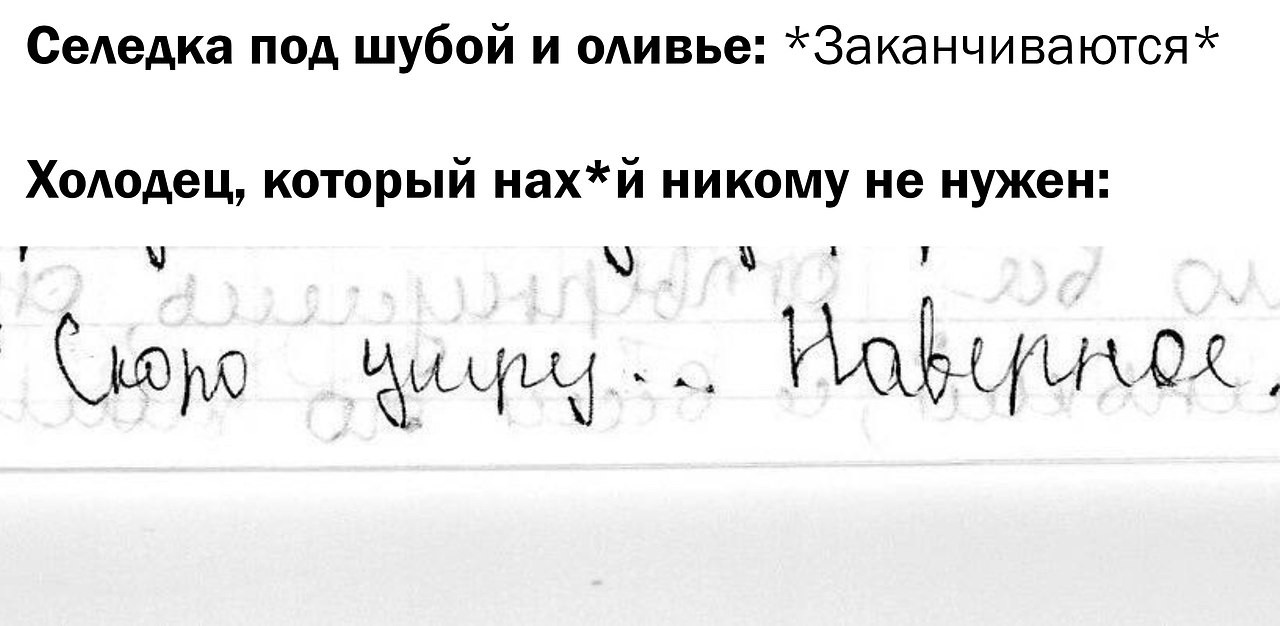 Селедка под шубой и оливье: *Заканчиваются*
Холодец, который нах*й никому не нужен:
Скоро умру... Наверное.